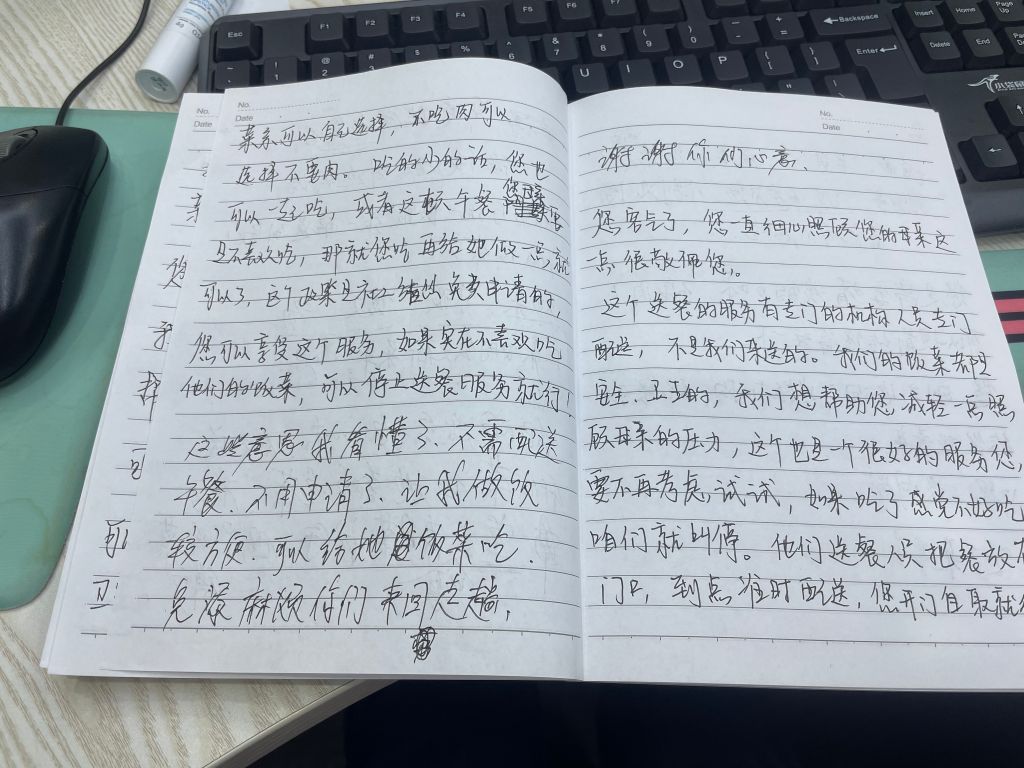 No.
Date
菜系可以自己选择，不吃肉可以
选择不要肉。吃的少的话，您也
可以一至吃，或者这顿午餐您母亲
是不喜欢吃，那就您吃再给她做一点就
可以了，这个政策是社工结的免费申请的，
您可以享受这个服务，如果实在不喜欢吃
他们的饭菜，可以停止送餐服务就行！
这些意思我看懂了，不需配送
午餐，不用申请了，让我做饭
较方便，可以给她做菜吃．
免深麻烦你们来回走趟，
No.
Date
谢谢你们心意，
您客气了，您一直细心照顾您的母亲这
点很敬佩您，
这个送餐的服务有专门的机构人员专门
配送，不是我们亲送的。我们的饭菜都是
安全、卫生的，我们想帮助您减轻一点照
顾母亲的压力，这个也是一个很好的服务您，
要不再考虑试试，如果吃了感觉不好吃
咱们就叫停。他们送餐人员把餐放在
门口，到点准时配送，您开门自取就
No.
Date
Esc
F1
F2
F3
F4
F5
F6
F7
F8
Backspace
Enter
U
I
O
P
Insert
Home
Page
Up
Delete
End